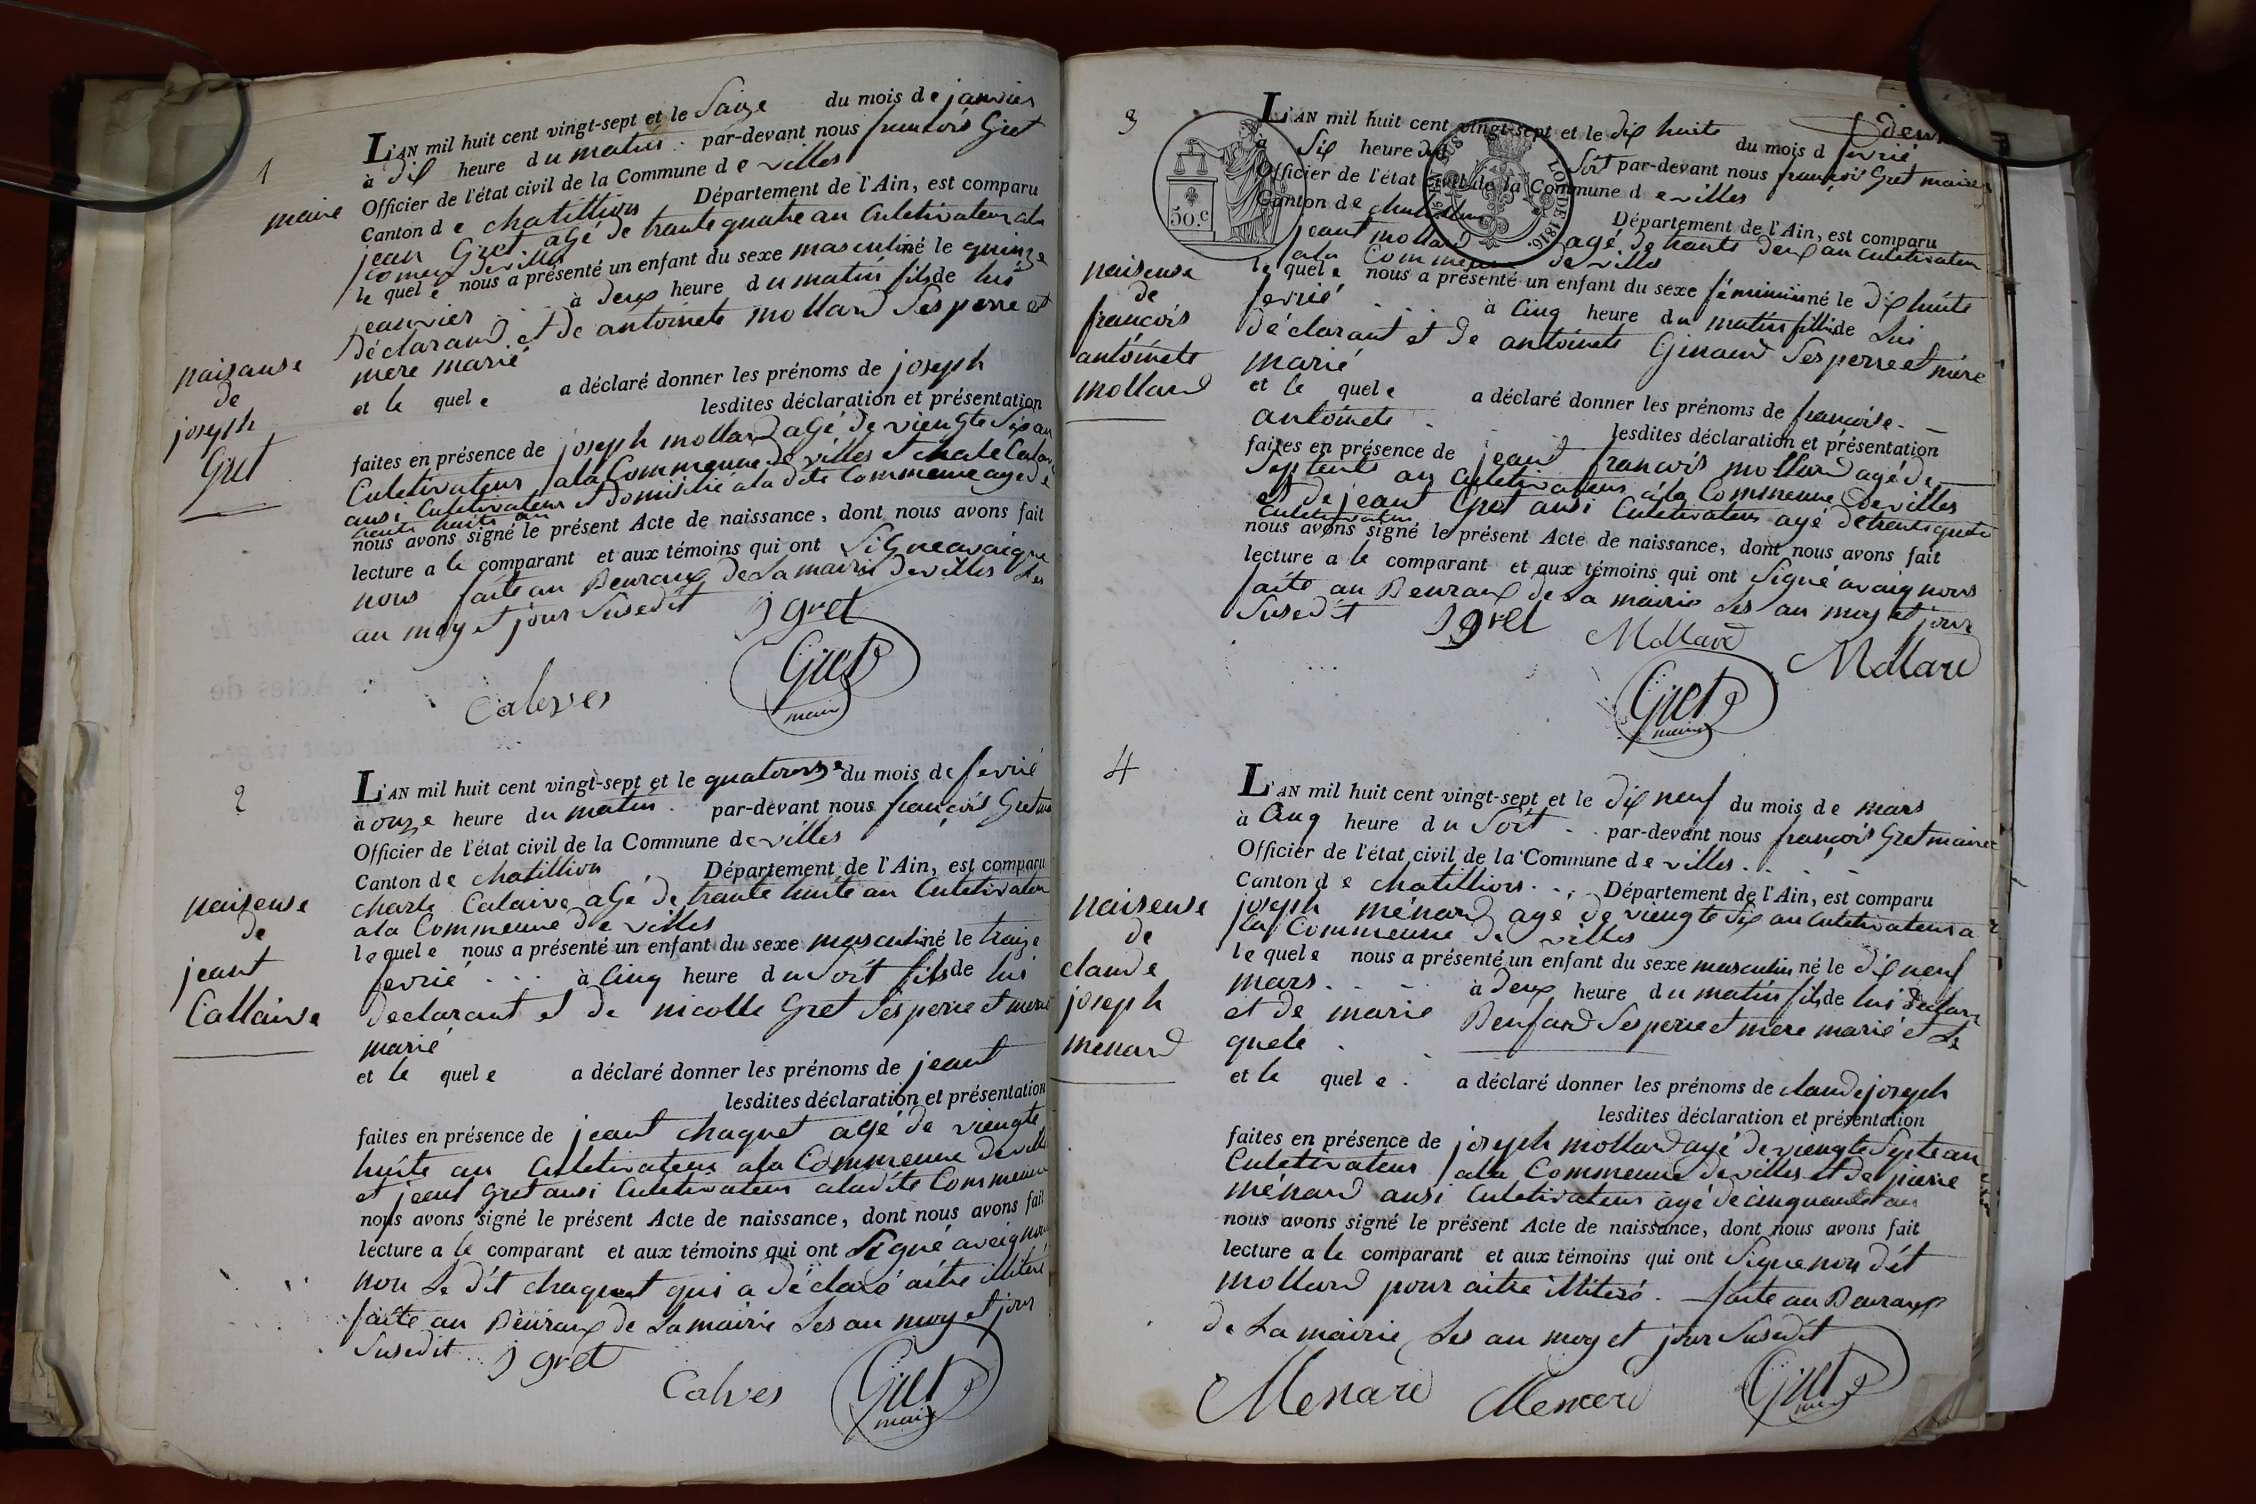 1
L'AN mil huit cent vingt-sept et le Saize du mois de janvier
à dix heure du matin. par-devant nous francois Gret
maire Officier de l'état civil de la Commune de villes
Canton de chatillion Département de l'Ain, est comparu
jean Gret agé de trante quatre an Culetivateur ala
Comeune de villes
le quel e nous a présenté un enfant du sexe masculin né le quinze
jeanvier à deux heure du matin fils de lui
déclarand et de antoinete mollard Ses perre et
mere marié
et le quel e a déclaré donner les prénoms de joseph
lesdites déclaration et présentation
naisanse
de
joseph
Gret
faites en présence de joseph mollard agé de viengte Six an
Culetivateur ala Commeune de villes et
ausi Culetivateur et domisilié ala dite Commeune agé de
trente huite an
nous avons signé le présent Acte de naissance, dont nous avons fait
lecture a le comparant et aux témoins qui ont Signe avaique
nous faite au Beuraux de La mairie de villes Les
an moy et jour Susedit
J gret
Gret
maire
Caleves
2
L'AN mil huit cent vingt-sept et le quatourze du mois de fevrié
à onze heure du matin. par-devant nous francois Gret
Officier de l'état civil de la Commune de villes
Canton de chatillion Département de l'Ain, est comparu
charle Calaive agé de trante huite an Culetivateur
ala Commeune de villes
le quel e nous a présenté un enfant du sexe masculin né le traize
fevrié à Cinq heure du Soit fils de lui
declarant et de nicolle Gret Ses perre et mere
marié
et le quel e a déclaré donner les prénoms de jeant
lesdites déclaration et présentation
naiseuse
de
jeant
Callaive
faites en présence de jeant chaquet agé de viengte
huite an Culetivateur ala Commeune de villes
et jeant gret ausi Culetivateur aladite Commeune
nous avons signé le présent Acte de naissance, dont nous avons fait
lecture a le comparant et aux témoins qui ont Signé aveiq nous
non Le dit chaquet qui a déclaré aitre illiteré
faite au Beuraux de La mairie Les an moy et jour
Susedit J gret
Calves
Gret
maire
3
L'AN mil huit cent vingt-sept et le dix huite du mois d fevrié
à Six heure du Soit par-devant nous francois Gret maire
Officier de l'état civil de la Commune de villes
Canton de Département de l'Ain, est comparu
jeant mollard agé de trante deux an Culetivateur
ala Commeune de villes
le quel e nous a présenté un enfant du sexe féminin né le dix huite
fevrié à Cinq heure du matin fille de Lui
déclarant et de antoinete Ginaud Ses perre et mère
marié
et le quel e a déclaré donner les prénoms de francoise
antoinete
lesdites déclaration et présentation
50.c
LOI DE 1816.
naiseuse
de
francois
antoinete
mollard
faites en présence de jeant francois mollard agé de
Septente an Culetivateur ala Commeune de villes
et de jeant Gret ausi Culetivateur agé de trente quatre
Culetivateur
nous avons signé le présent Acte de naissance, dont nous avons fait
lecture a le comparant et aux témoins qui ont Signé avaiq nous
faite au Beuraux de La mairie Les an moy et jour
Susedit
J gret
Mollard
Mollard
Gret
maire
4
L'AN mil huit cent vingt-sept et le dix neuf du mois de mars
à Cinq heure du Soit par-devant nous francois Gret maire
Officier de l'état civil de la Commune de villes
Canton de chatillion Département de l'Ain, est comparu
joseph ménard agé de viengte Six an Culetivateur a
La Commeune de villes
le quel e nous a présenté un enfant du sexe masculin né le dix neuf
mars à deux heure du matin fils de lui declar
et de marie Benfard Ses perre et mere marié et Le
quele
et le quel e a déclaré donner les prénoms de claude joseph
lesdites déclaration et présentation
naiseuse
de
claude
joseph
menard
faites en présence de joseph mollard agé de viengte Septe an
Culetivateur ala Commeune de villes et de piere
ménard ausi Culetivateur agé de cinquante an
nous avons signé le présent Acte de naissance, dont nous avons fait
lecture a le comparant et aux témoins qui ont Signe non dit
mollard pour aitre illiteré. faite au Beuraux
de La mairie Les an moy et jour Susedit
Menard
Menard
Gret
maire